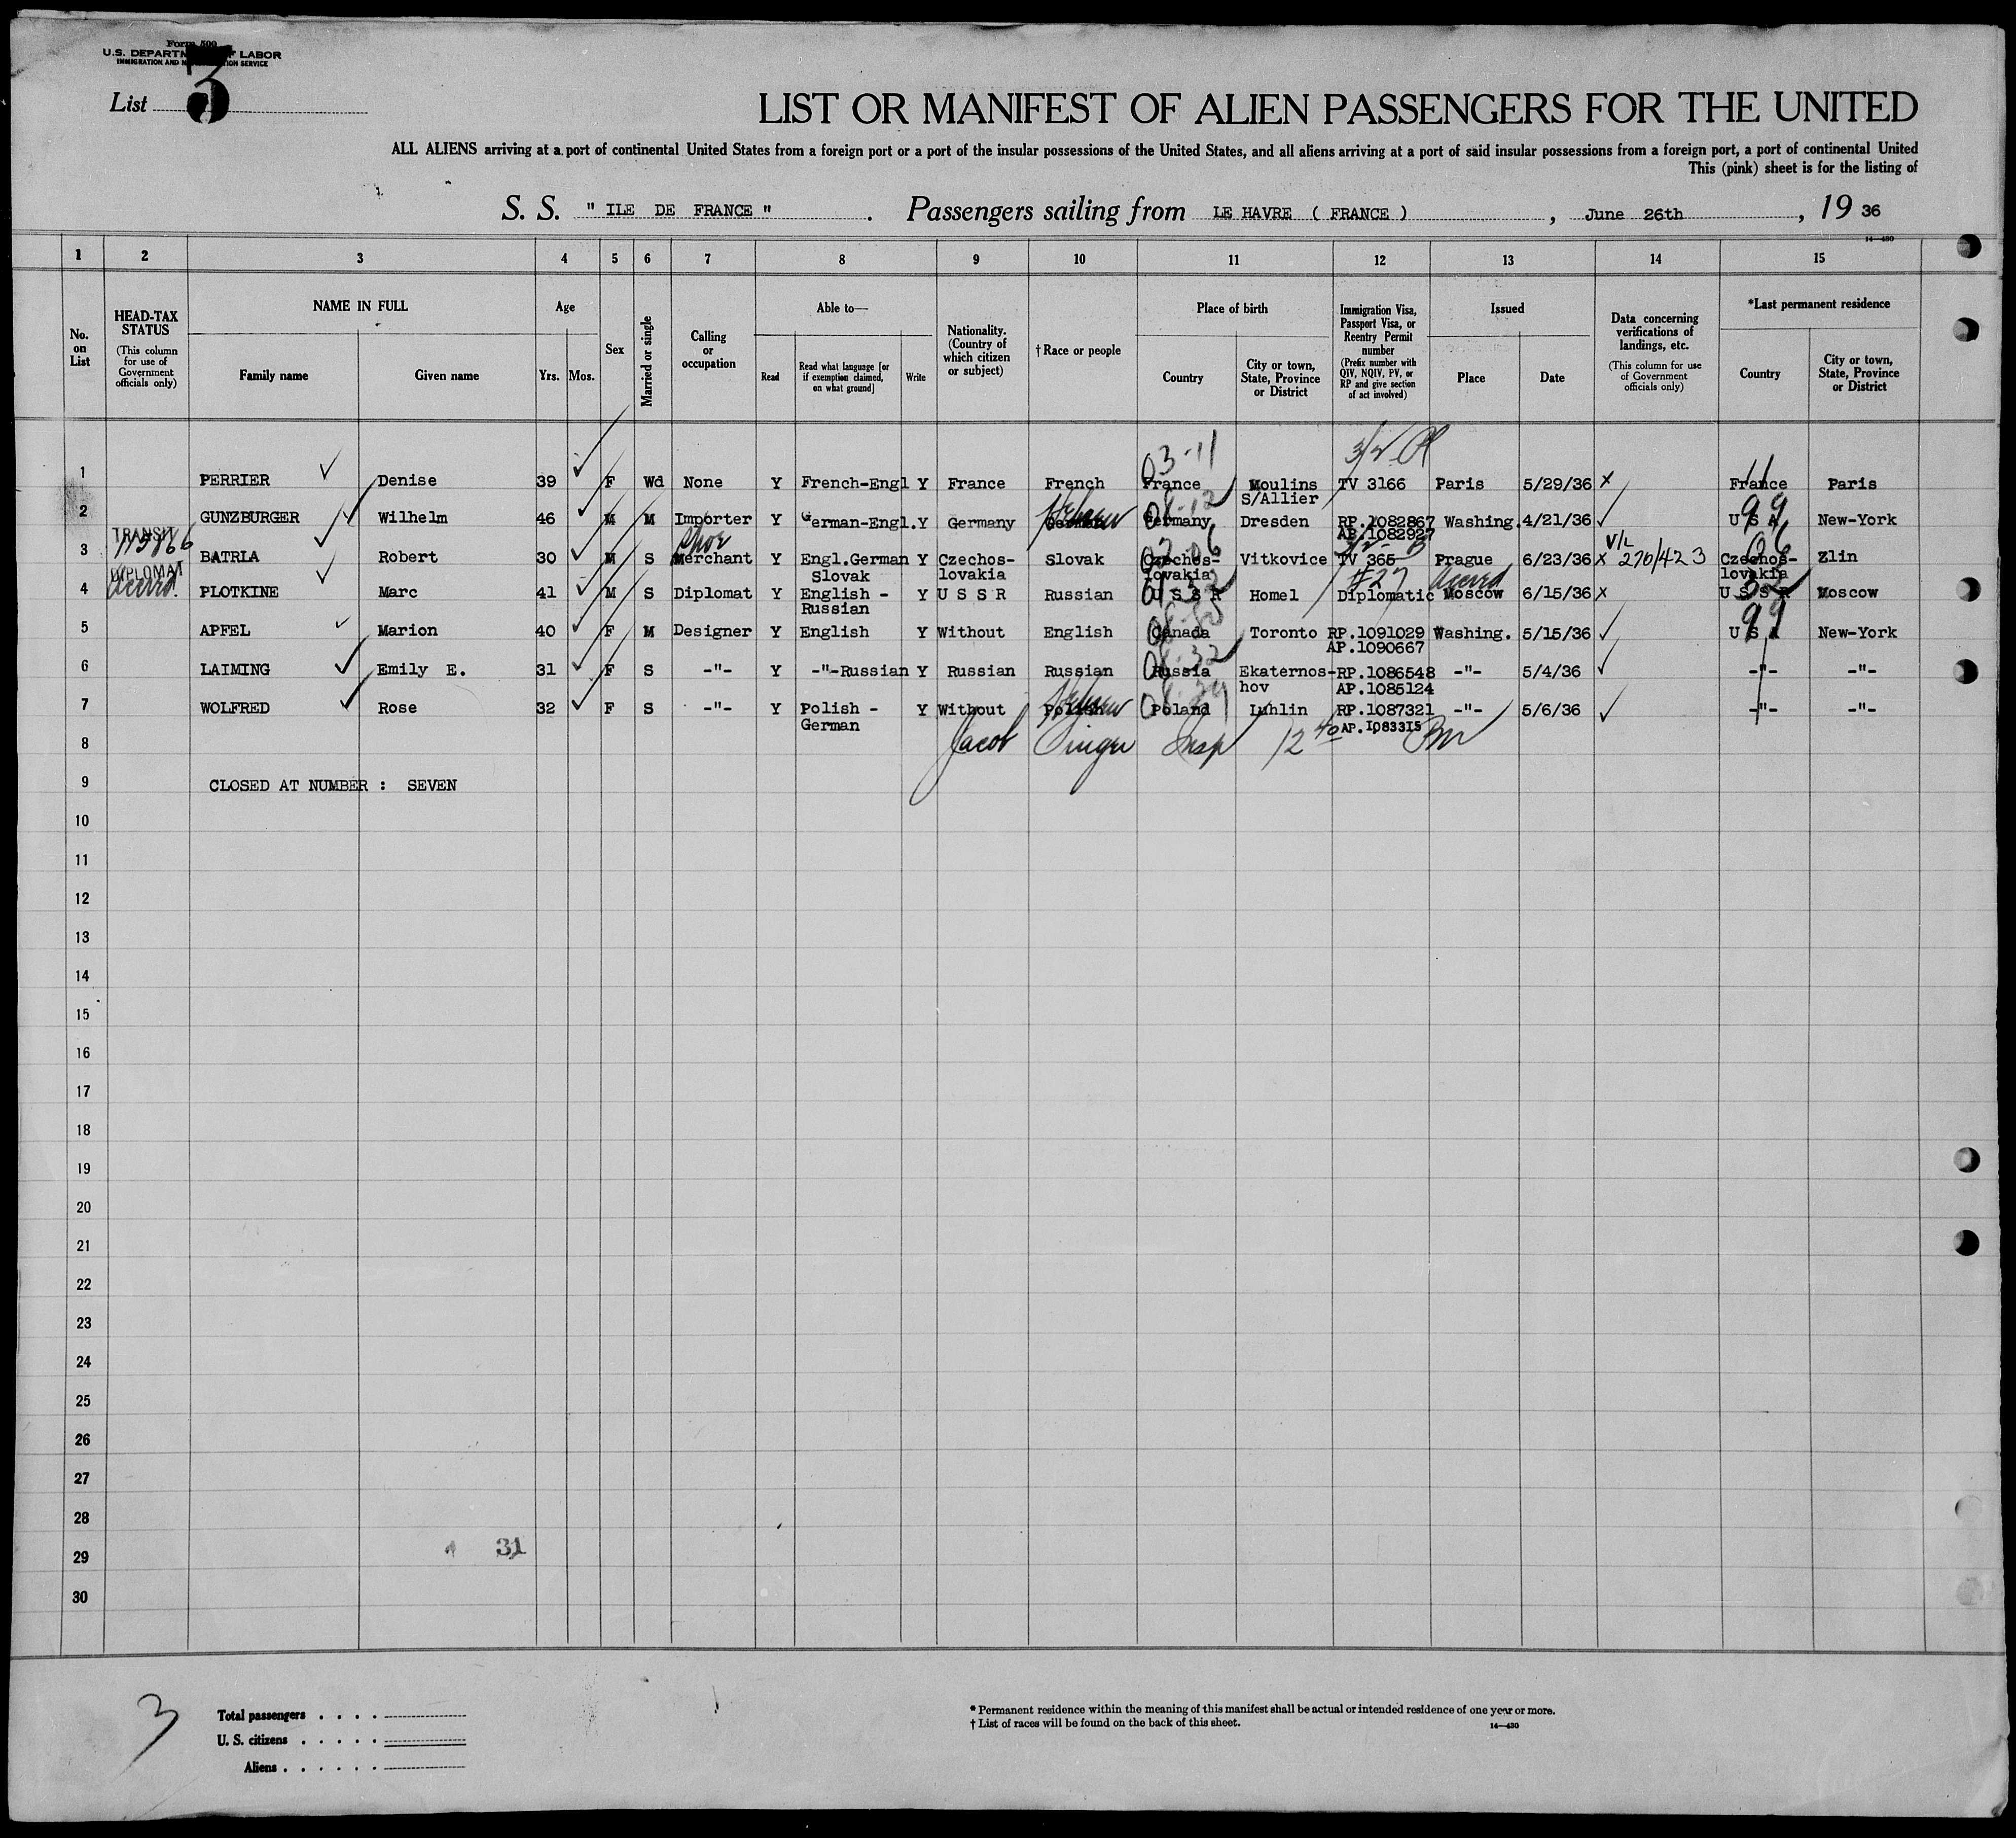 Form 500
U.S. DEPARTMENT OF LABOR
IMMIGRATION AND NATURALIZATION SERVICE
List 3
LIST OR MANIFEST OF ALIEN PASSENGERS FOR THE UNITED
ALL ALIENS arriving at a port of continental United States from a foreign port or a port of the insular possessions of the United States, and all aliens arriving at a port of said insular possessions from a foreign port, a port of continental United
This (pink) sheet is for the listing of
S. S. " ILE DE FRANCE " . Passengers sailing from LE HAVRE ( FRANCE ) , June 26th , 19 36
14—430
1 2 3 4 5 6 7 8 9 10 11 12 13 14 15
No. on List
HEAD-TAX STATUS
(This column for use of Government officials only)
NAME IN FULL
Family name
Given name
Age
Yrs. Mos.
Sex
Married or single
Calling or occupation
Able to—
Read
Read what language [or if exemption claimed, on what ground]
Write
Nationality. (Country of which citizen or subject)
† Race or people
Place of birth
Country
City or town, State, Province or District
Immigration Visa, Passport Visa, or Reentry Permit number
(Prefix number with QIV, NQIV, PV, or RP and give section of act involved)
Issued
Place
Date
Data concerning verifications of landings, etc.
(This column for use of Government officials only)
*Last permanent residence
Country
City or town, State, Province or District
03-11 3/2
1 PERRIER Denise 39 F Wd None Y French-Engl Y France French France Moulins S/Allier TV 3166 Paris 5/29/36 x 11 France Paris
2 GUNZBURGER Wilhelm 46 M M Importer Y German-Engl. Y Germany Hebrew Germany Dresden RP.1082867 AP.1082927 Washing. 4/21/36 99 U S A New-York
TRANSIT 115866
3 BATRLA Robert 30 M S Shoe Merchant Y Engl.German Slovak Y Czechos-lovakia Slovak Czechos-lovakia Vitkovice TV 365 Prague 6/23/36 x V/L 270/423 06 Czechos-lovakia Zlin
DIPLOMAT Accrd.
4 PLOTKINE Marc 41 M S Diplomat Y English - Russian Y U S S R Russian U S S R Homel #27 Diplomatic Accrd Moscow 6/15/36 x 32 U S S R Moscow
5 APFEL Marion 40 F M Designer Y English Y Without English Canada Toronto RP.1091029 AP.1090667 Washing. 5/15/36 99 U S A New-York
6 LAIMING Emily E. 31 F S -"- Y -"-Russian Y Russian Russian Russia Ekaternos-hov RP.1086548 AP.1085124 -"- 5/4/36 -"- -"-
7 WOLFRED Rose 32 F S -"- Y Polish - German Y Without Hebrew Poland Lublin RP.1087321 AP.1083315 -"- 5/6/36 -"- -"-
8 Jacob Insp 12 40 Pm
9 CLOSED AT NUMBER : SEVEN
10
11
12
13
14
15
16
17
18
19
20
21
22
23
24
25
26
27
28
29 31
30
3
Total passengers . . . .
U. S. citizens . . . . .
Aliens . . . . . .
* Permanent residence within the meaning of this manifest shall be actual or intended residence of one year or more.
† List of races will be found on the back of this sheet.
14—430